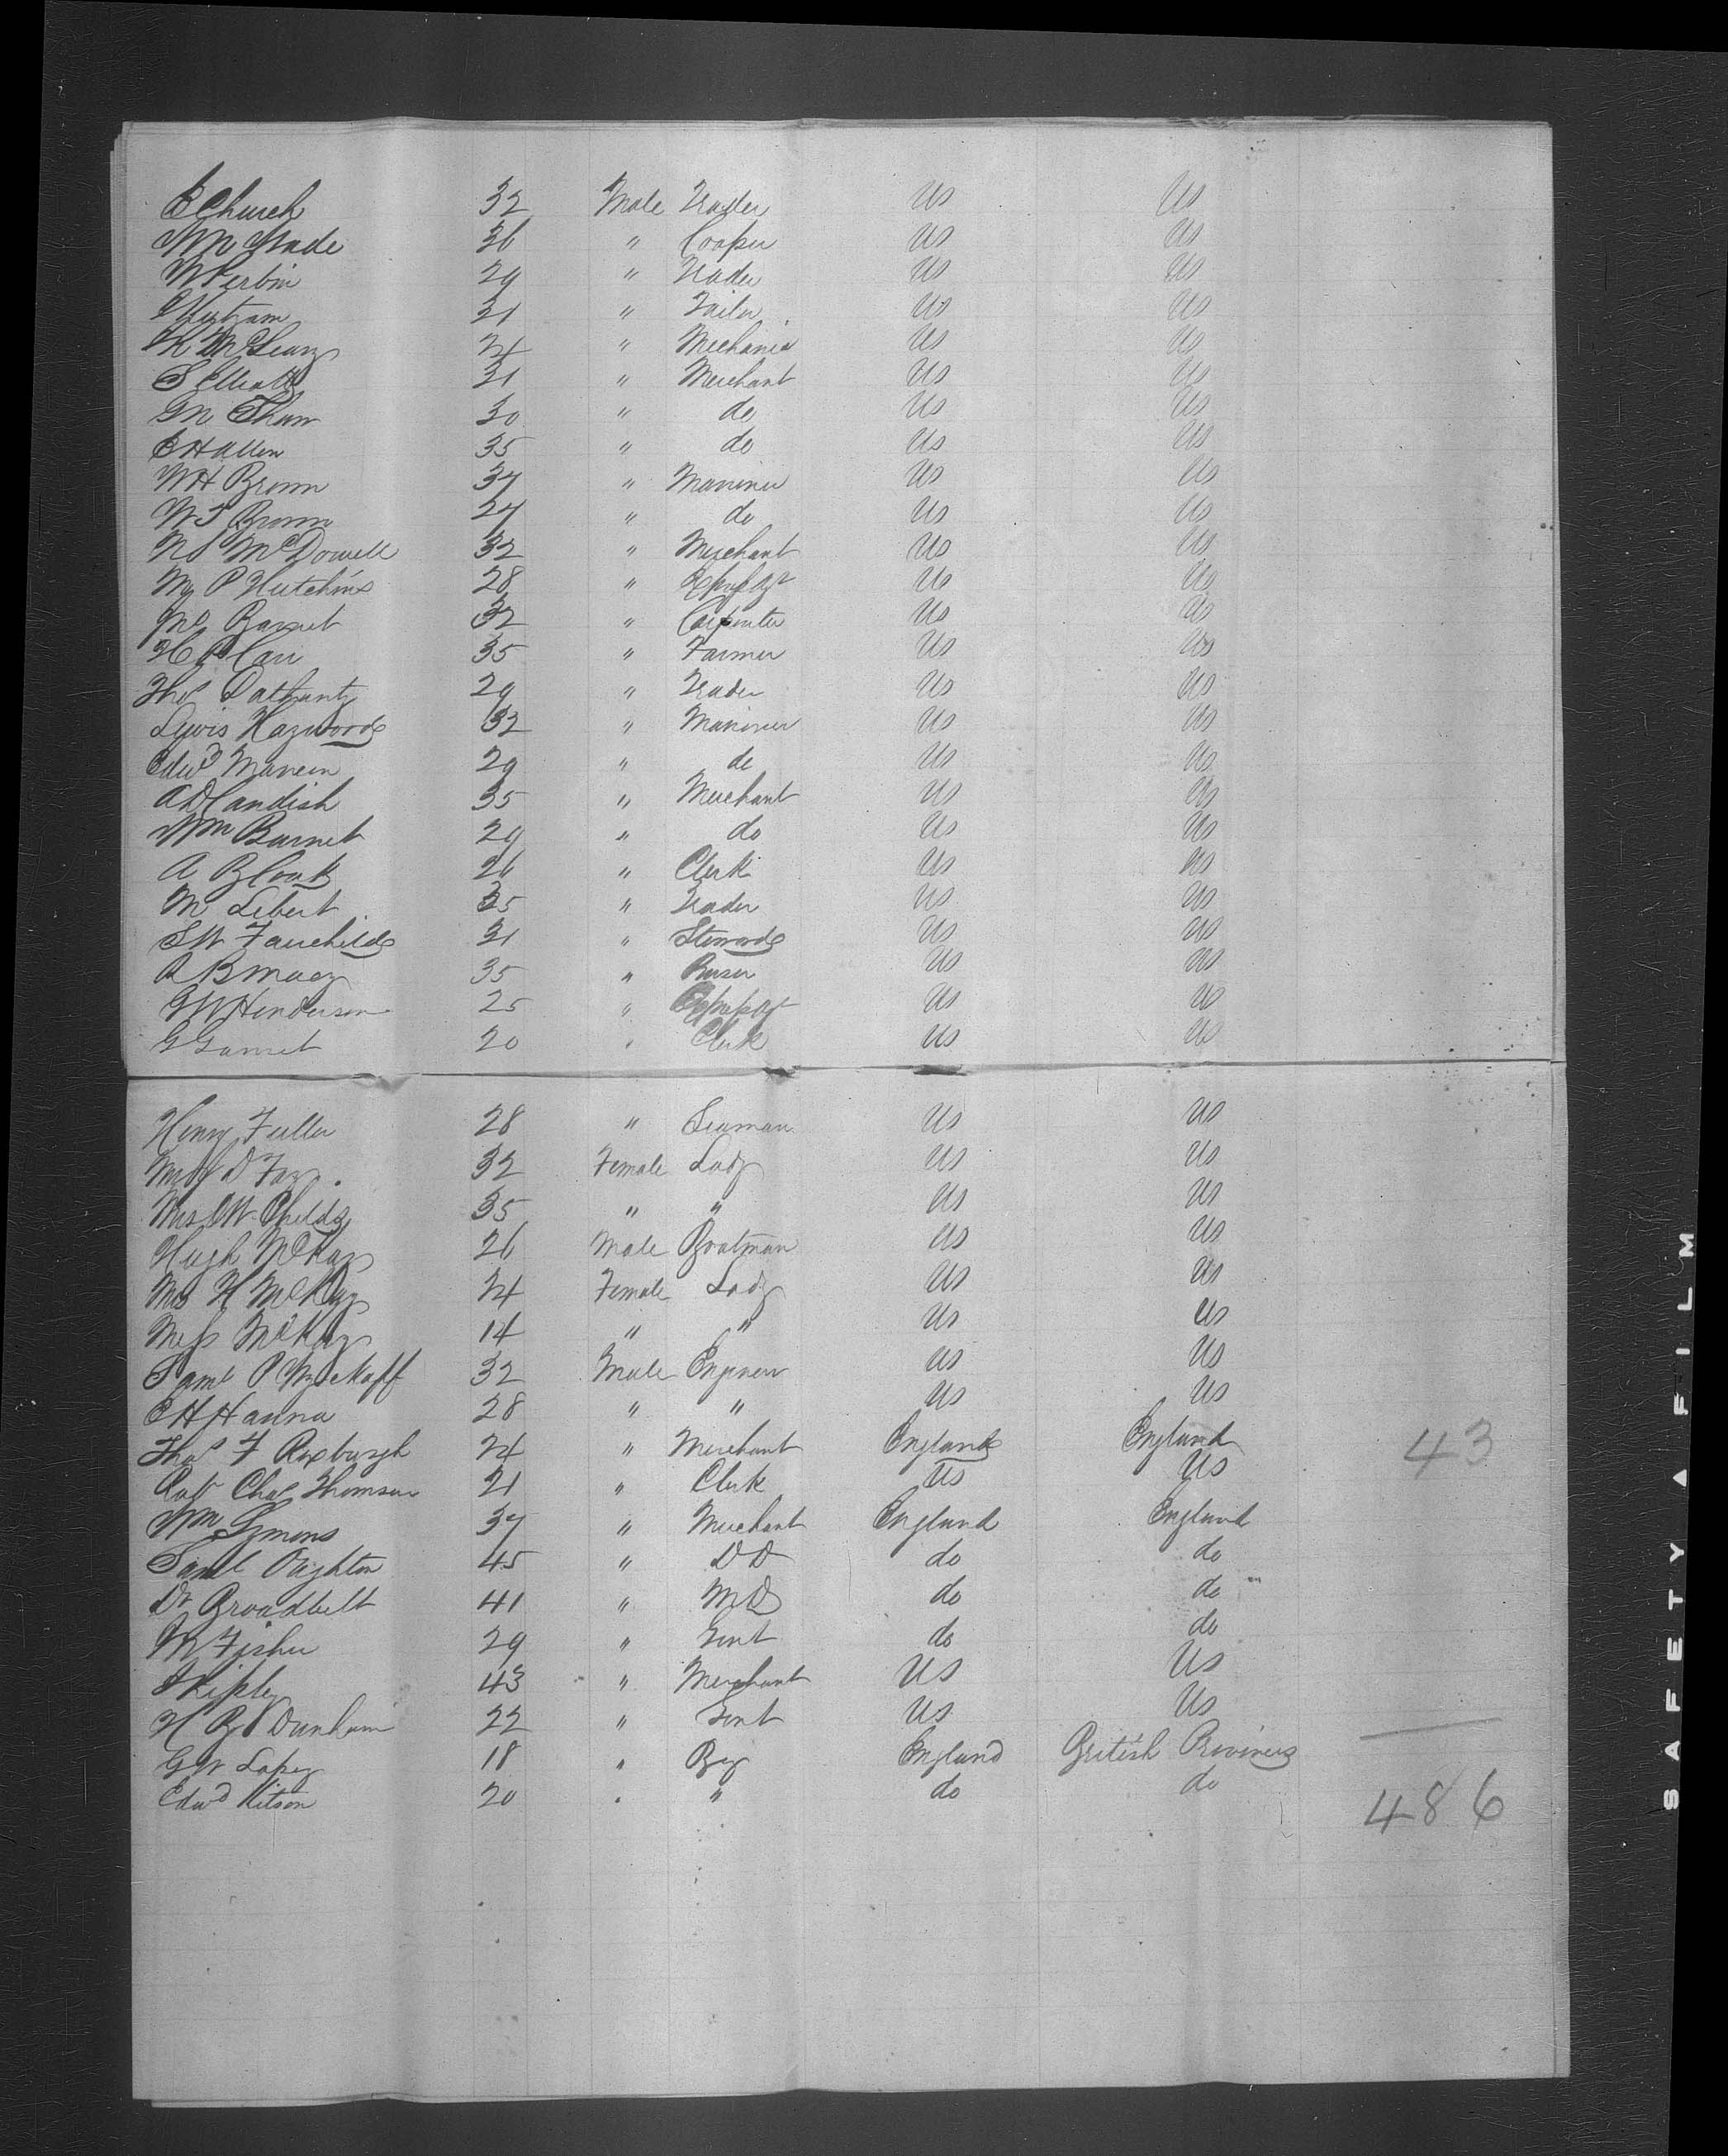 E Church 32 Male Trader US US
Wm Slade 36 " Cooper US US
W Perbin 29 " Trader US US
31 " Tailor US US
K McLeary 24 " Mechanic US US
S Elliott 31 " Merchant US US
M Shaw 30 " do US US
E H Allen 35 " do US US
W H Brown 37 " Mariner US US
W S Brown 27 " do US US
McDowell 32 " Merchant US US
Wm P Hutchins 28 " US US
Barnet 32 " Carpenter US US
H P Carr 35 " Farmer US US
Thos 29 " Trader US US
Lewis Haywood 32 " Mariner US US
Edwd 29 " do US US
A D Candish 35 " Merchant US US
Wm Barnet 29 " do US US
A Bloak 26 " Clerk US US
M Libert 35 " Trader US US
S W Fairchild 31 " Steward US US
R B Macy 35 " Purser US US
G W Henderson 25 " US US
G Garnet 20 " Clerk US US
Henry Fuller 28 " Seaman US US
D Fay 32 Female Lady US US
Mrs C W Childs 35 " " US US
Hugh McKay 26 Male Boatman US US
Mrs H McKay 24 Female Lady US US
Miss McKay 14 " " US US
Saml P Wyckoff 32 Male Engineer US US
E H Hanna 28 " " US US
Thos F Roxburgh 24 " Merchant England England 43
Robt Chas Thomson 21 " Clerk US US
Wm Symons 37 " Merchant England England
Saml Oughton 45 " D D do do
Dr Broadbelt 41 " M D do do
M Fisher 29 " Gent do do
Shipley 43 " Merchant US US
H B Dunham 22 " Gent US US
G W Lopez 18 " Boy England British Provinces
Edwd Kitson 20 " " do do
486
SAFETY A FILM